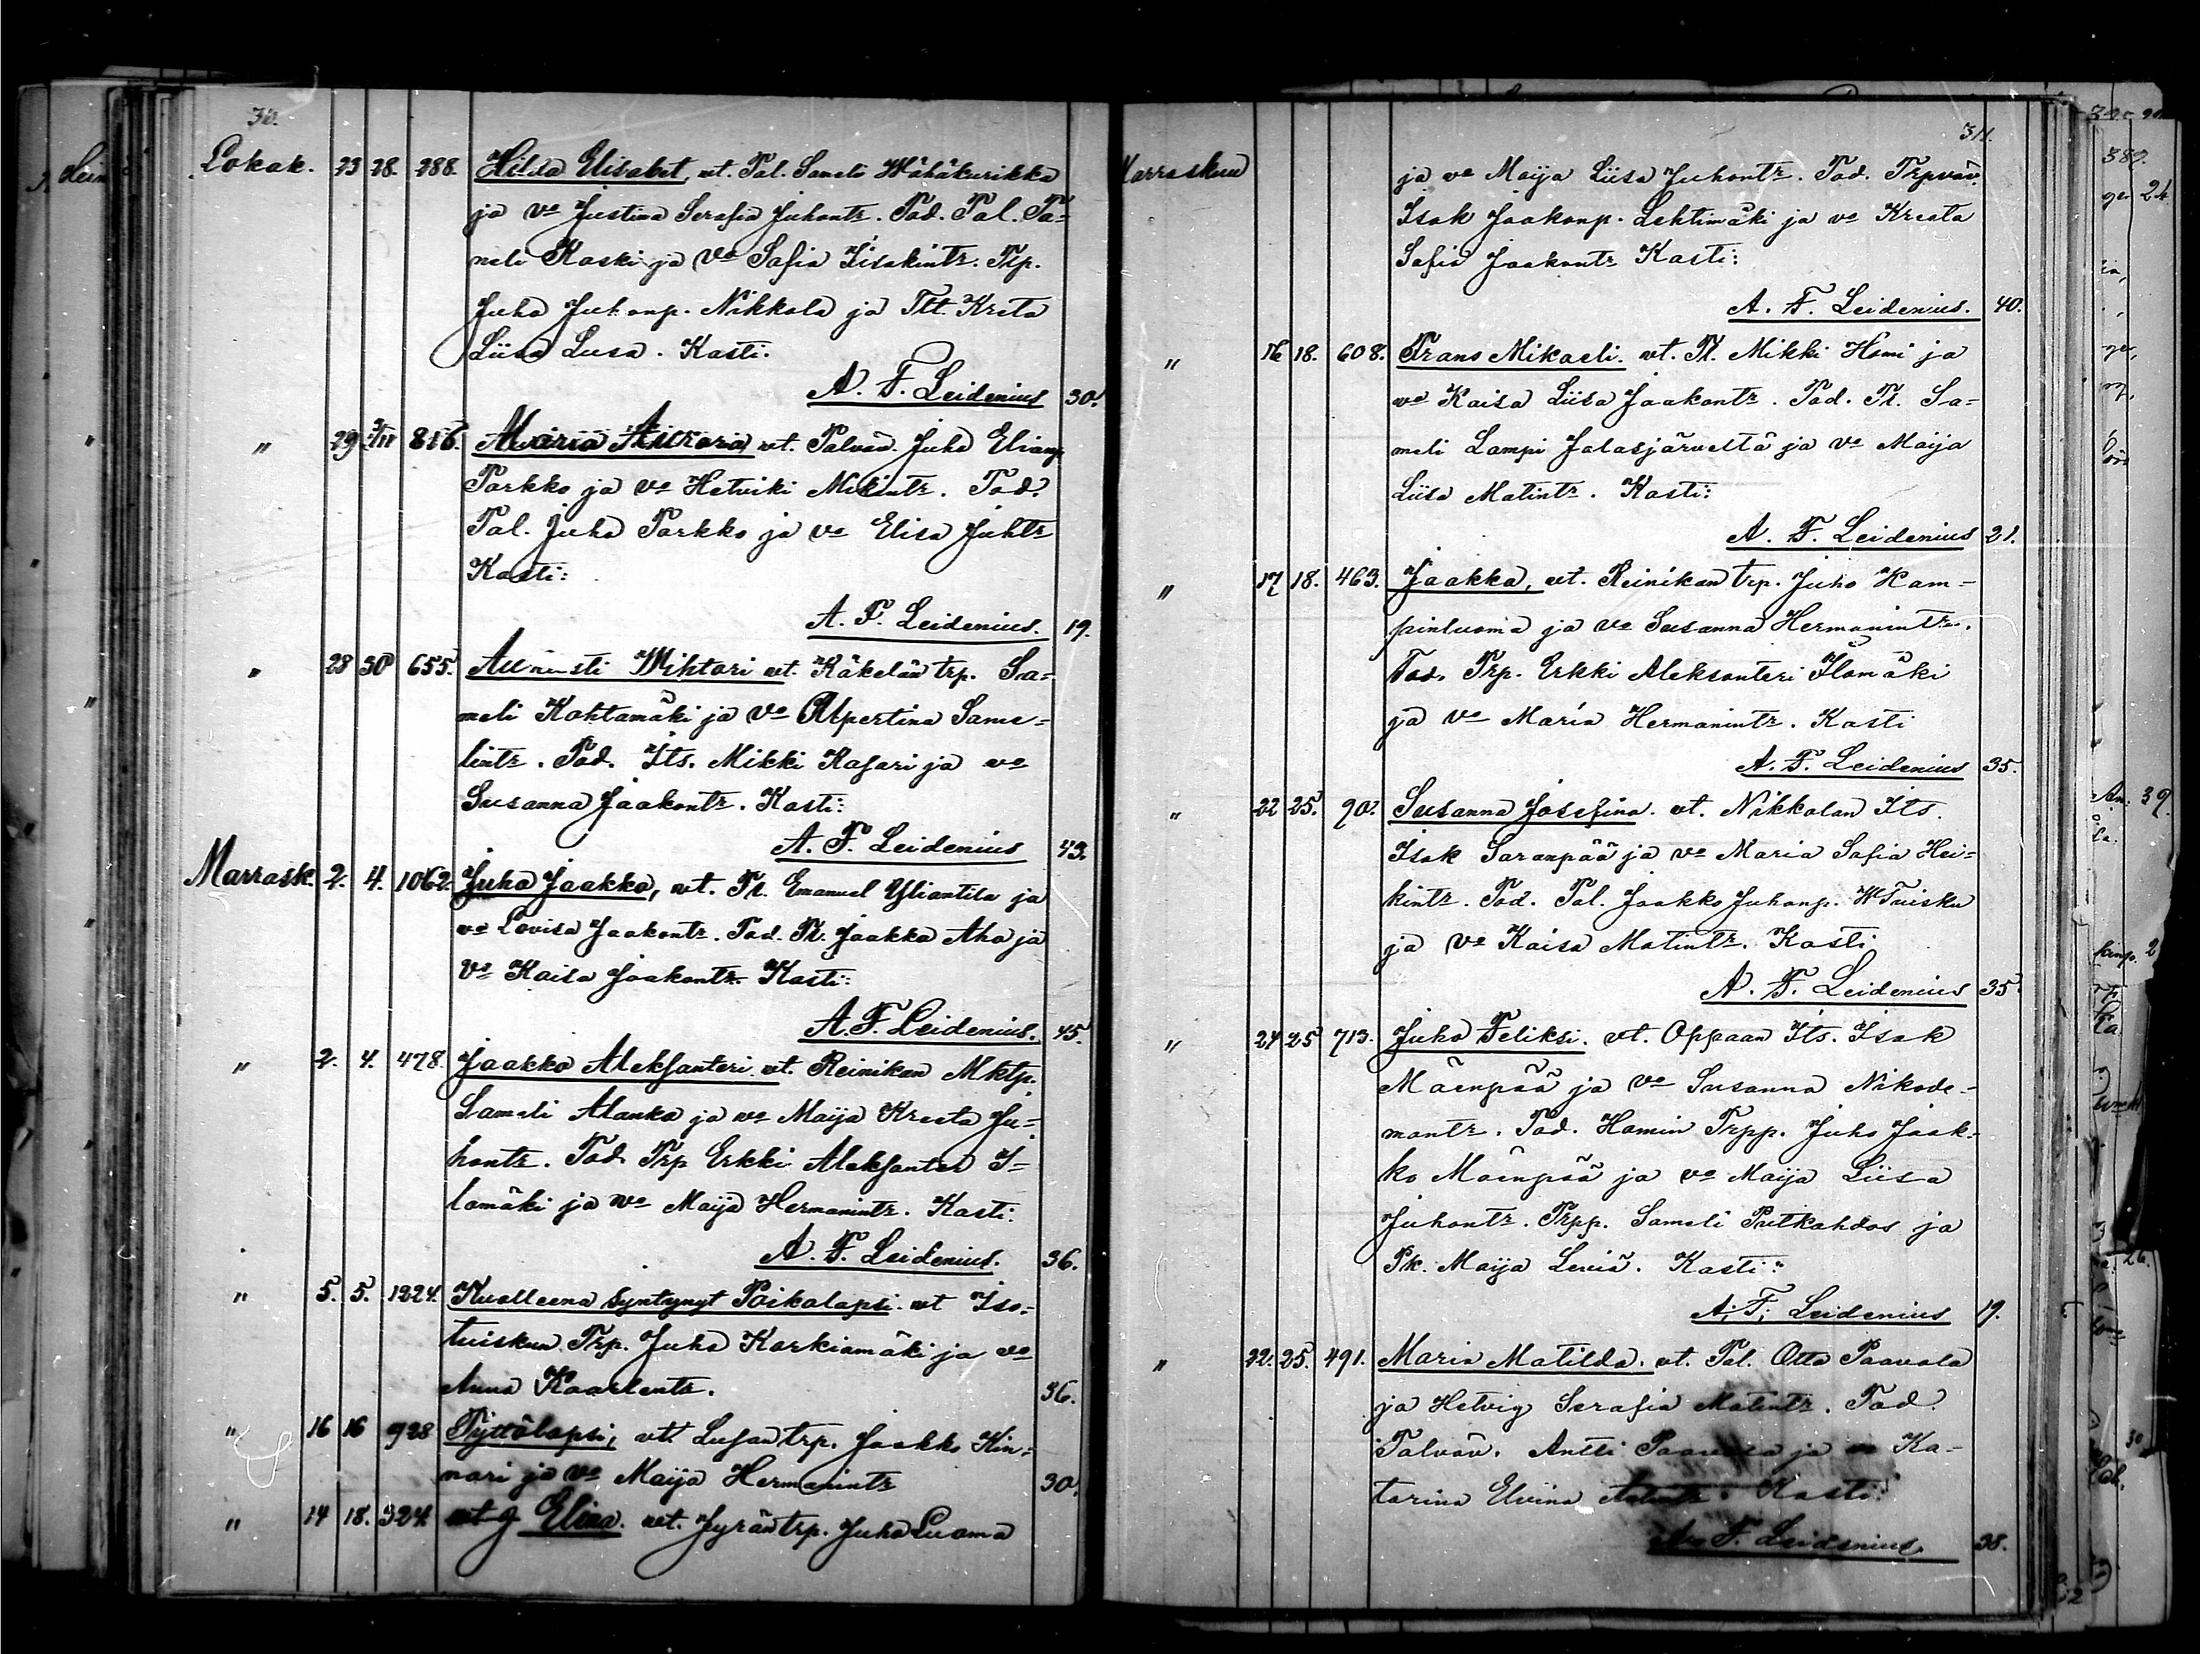 Lokak. 23 28. 288. Hilda Elisabet, vt. Pal. Sameli Wähäkurikka
ja vo Justina Serafia Juhontr. Tod. Pal. Sa-
meli Koski ja Vo Sofia Iisakintr. Trp.
Juho Juhonp. Nikkola ja Tlt. Kreta
Liisa Lusa. Kasti:
A. F. Leidenius 30.
" 29 816. Maria Aurora, vt. Palväv. Juho Elianp
Porkko ja vo Hetviki Mikintr. Tod.
Pal. Juho Porkko ja vo Elisa Juhtr
Kasti:
A. F. Leidenius. 19.
" 28 30 655. Wihtori vt. Käkelän trp. Sa-
meli Kohtamäki ja Vo Alpertina Same-
lintr. Tod. Its. Mikki Rajari ja vo
Susanna Jaakontr. Kasti:
A. F. Leidenius 43.
Marrask. 2. 4. 1062. Juho Jaakko, vt. Tl. Emanuel Yliantila ja
vo Lovisa Jaakontr. Tod. Tl. Jaakko Aho ja
Vo Kaisa Jaakontr. Kasti:
A. F. Leidenius. 45.
" 2. 4. 478. Jaakko Aleksanteri. vt. Reinikan Mktp.
Sameli Alanko ja vo Maija Kreeta Ju-
hontr. Tod. Trp Erkki Aleksanter I-
lomäki ja vo Maija Hermanintr. Kasti:
A. F. Leidenius. 36.
" 5. 5. 1224. Kuolleena syntynyt Poikalapsi. vt Iso-
tuiskun Trp. Juho Korkiamäki ja vo
Anna Kaarlentr. 36.
" 16 16 928 Tyttölapsi, vt. Lusan trp. Jaakko Kin-
nari ja vo Maija Hermanintr 30.
" 14 18. 324. Elina. vt. Jyrän trp. Juho Luoma
311.
Marraskuu ja vo Maija Liisa Juhontr. Tod. Trpväv.
Isak Jaakonp. Lehtimäki ja vo Kreeta
Sofia Jaakontr Kasti:
A. F. Leidenius. 40.
" 16 18. 608. Frans Mikaeli. vt. Tl. Mikki Homi ja
vo Kaisa Liisa Jaakontr. Tod. Tl. Sa-
meli Lampi Jalasjärveltä ja Vo Maija
Liisa Matintr. Kasti:
A. F. Leidenius 21.
" 17 18. 463. Jaakko, vt. Reinikan trp. Juho Kam-
pinluoma ja vo Susanna Hermanintr.
Tod. Trp. Erkki Aleksanteri Ilomäki
ja vo Maria Hermanintr. Kasti
A. F. Leidenius 35.
" 22 25. 90. Susanna Josefina. vt. Nikkolan Its.
Isak Saranpää ja vo Maria Sofia Hei-
kintr. Tod. Pal. Jaakko Juhonp. WTuisku
ja Vo Kaisa Matintr. Kasti
A. F. Leidenius 35.
" 24 25 713. Juho Feliksi. vt. Oppaan Its. Isak
Mäenpää ja Vo Susanna Nikode-
montr. Tod. Homin Trpp. Juho Jaak-
ko Mäenpää ja vo Maija Liisa
Juhontr. Trpp. Sameli Putkahdos ja
Pk. Maija Leviä. Kasti:
A. F. Leidenius 19.
" 22. 25. 491. Maria Matilda. vt. Pal. Otto Paavola
ja Hetvig Serafia Matintr. Tod.
Talväv. Antti Paavola ja vo Ka-
tarina Elvina Kasti:
A. F. Leidenius. 38.